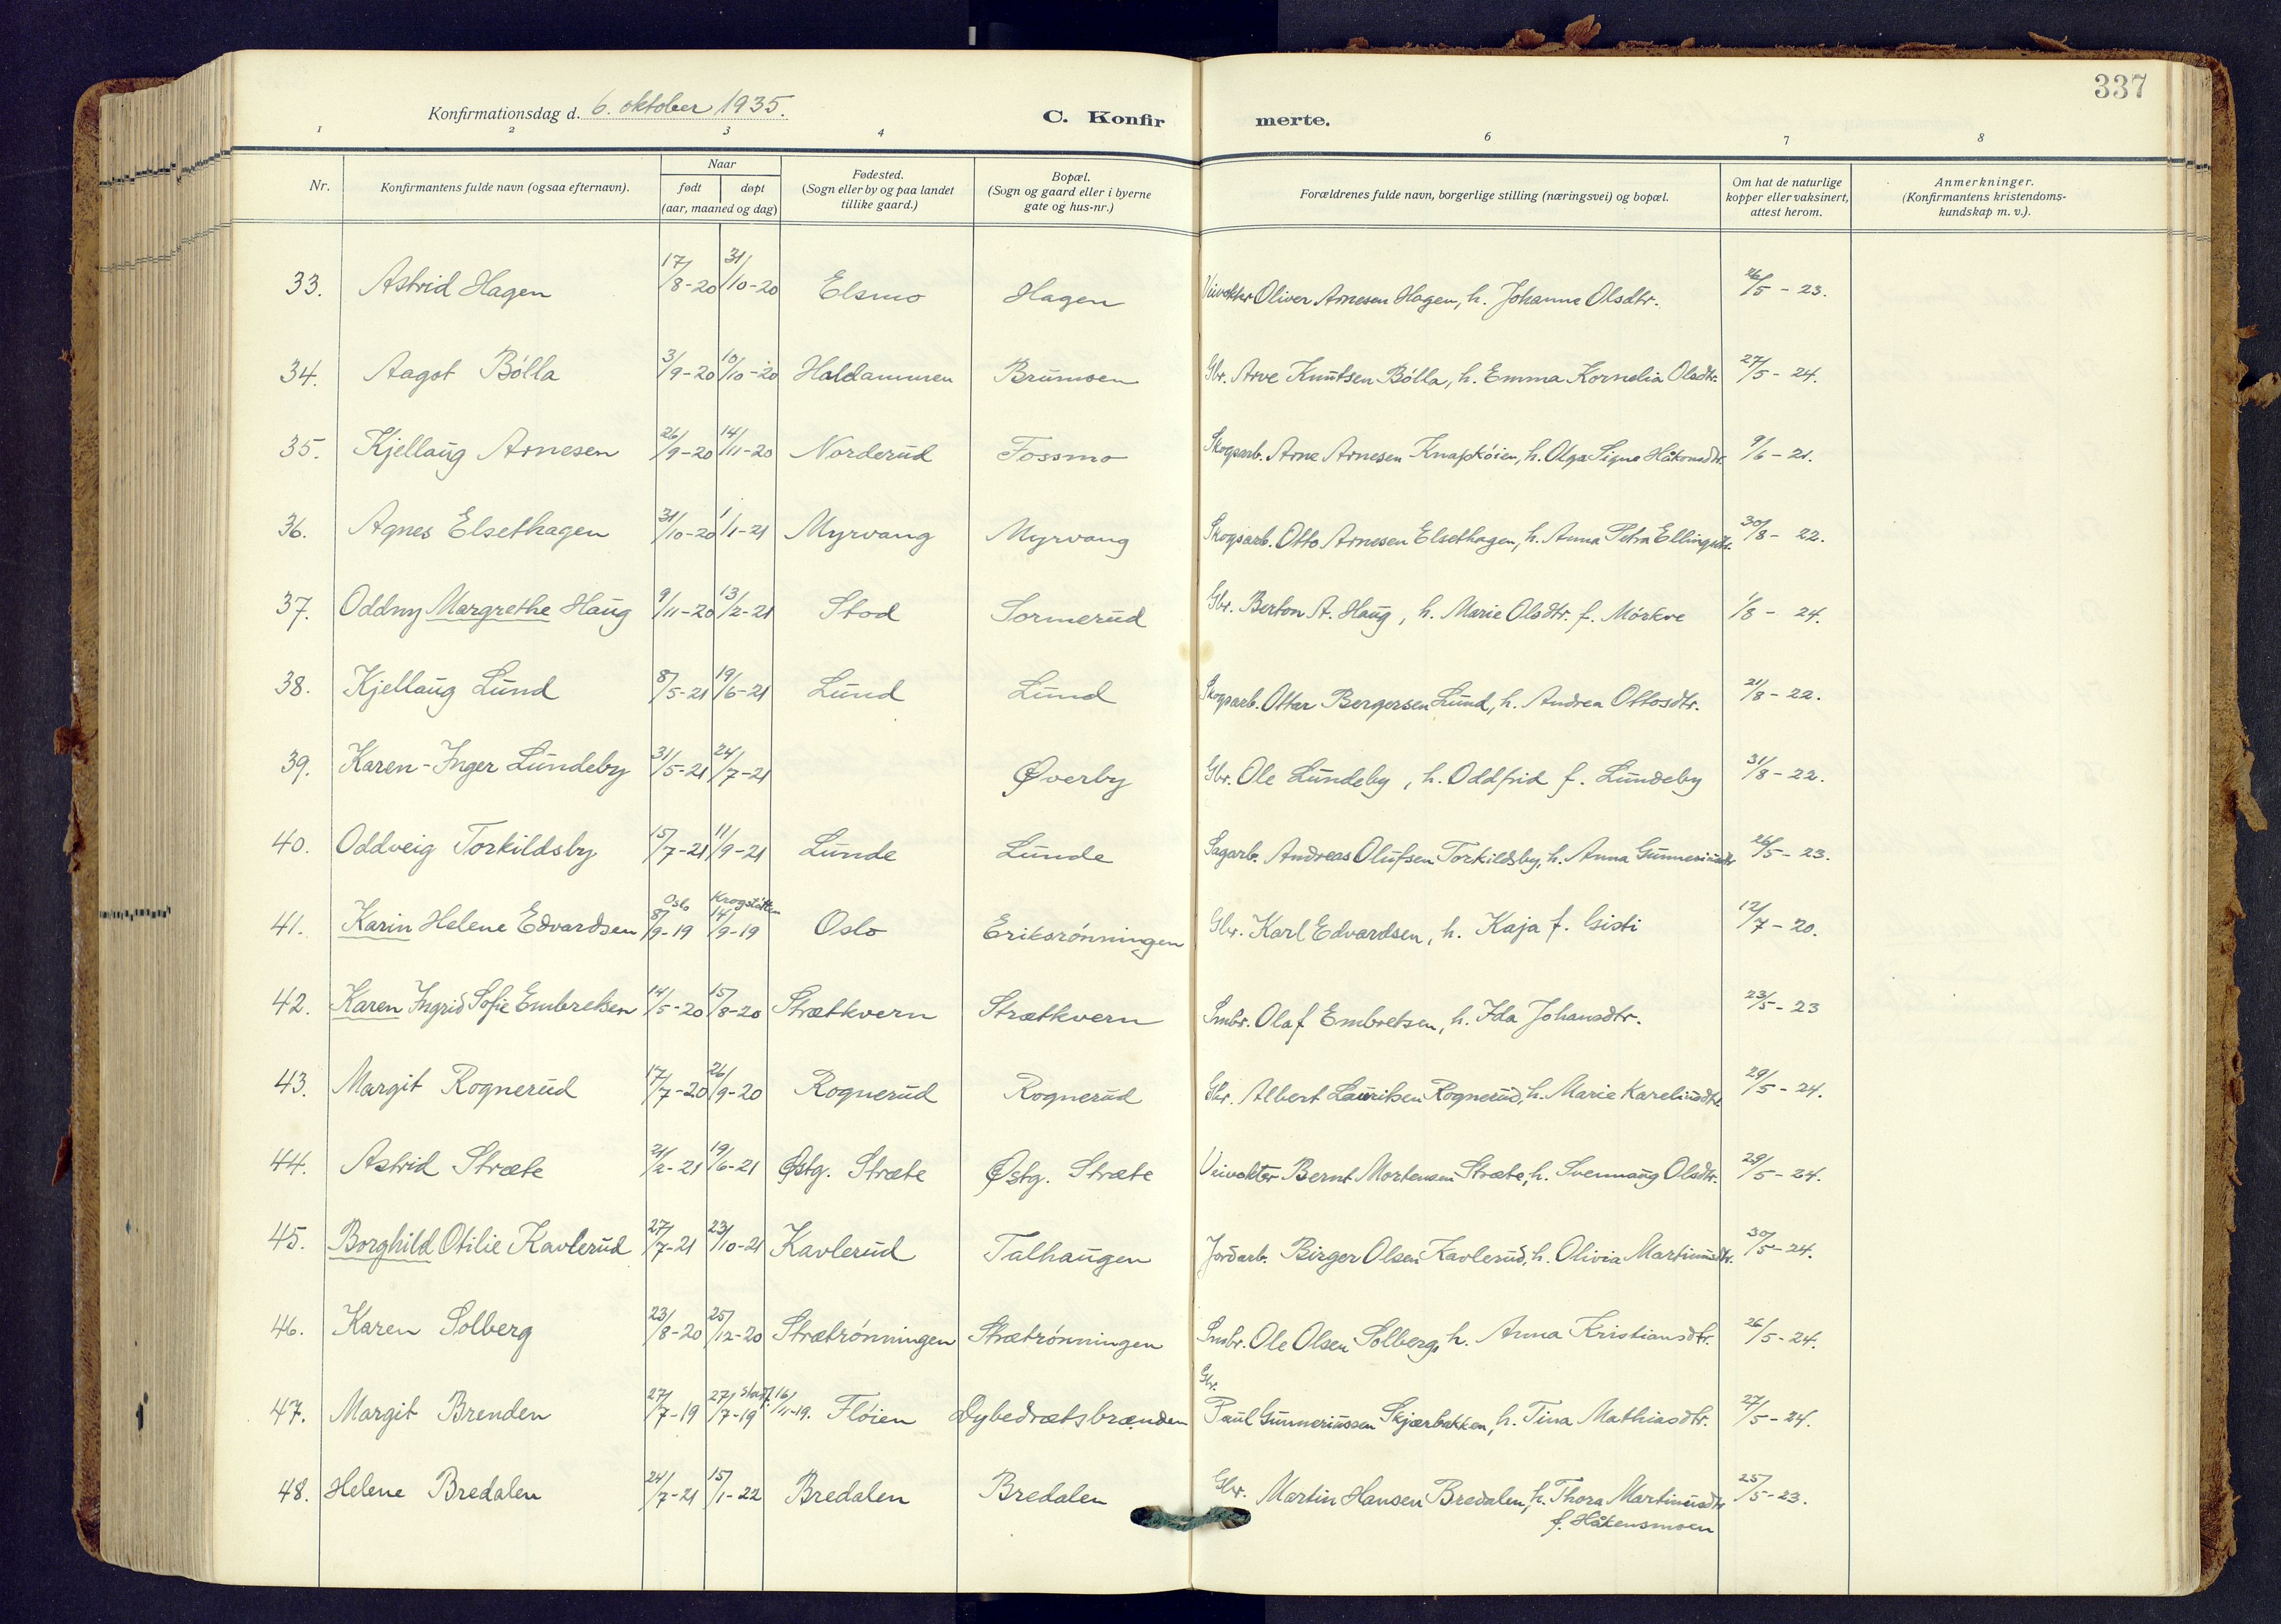 337
Konfirmationsdag d. 6. oktober 1935.
C. Konfir merte.
1 2 3 4 6 7 8
Nr.
Konfirmantens fulde navn (ogsaa efternavn).
Naar
født døpt
(aar, maaned og dag)
Fødested.
(Sogn eller by og paa landet
tillike gaard.)
Bopæl.
(Sogn og gaard eller i byerne
gate og hus-nr.)
Forældrenes fulde navn, borgerlige stilling (næringsvei) og bopæl.
Om hat de naturlige
kopper eller vaksinert,
attest herom.
Anmerkninger.
(Konfirmantens kristendoms-
kundskap m. v.).
33. Astrid Hagen 17/8-20 31/10-20 Elsmo Hagen Veivokter Oliver Arnesen Hagen, h. Johanne Olsdtr. 26/5 - 23.
34. Aagot Bölla 3/9-20 10/10-20 Holdammen Brumoen Gbr. Arve Knutsen Bölla, h. Emma Kornelia Olsdtr. 27/5 - 24.
35. Kjellaug Arnesen 26/9-20 14/11-20 Norderud Fossmo Skogsarb. Arne Arnesen Knapköien, h. Olga Signe Håkonsdtr. 9/6 - 21.
36. Agnes Elsethagen 31/10-20 1/1-21 Myrvang Myrvang Skogsarb. Otto Arnesen Elsethagen, h. Anna Petra Ellingsdtr. 30/8 - 22.
37. Oddny Margrethe Haug 9/11-20 13/2-21 Stod Sormerud Gbr. Berton A. Haug, h. Marie Olsdtr. f. Mörkve 1/8 - 24.
38. Kjellaug Lund 8/5-21 19/6-21 Lund Lund Skogsarb. Ottar Bergersen Lund, h. Andrea Ottosdtr. 21/8 - 22.
39. Karen-Inger Lundeby 31/5-21 24/7-21 Øverby Gbr. Ole Lundeby, h. Oddfrid f. Lundeby 31/8 - 22.
40. Oddveig Torkildsby 15/7-21 11/9-21 Lunde Lunde Sagarb. Andreas Olufsen Torkildsby, h. Anna Gunneriusdtr 26/5 - 23.
Oslo
41. Karin Helene Edvardsen 8/9-19 14/9-19 Oslo Eriksrönningen Gbr. Karl Edvardsen, h. Kaja f. Gisti 12/7 - 20.
42. Karen Ingrid Sofie Embretsen 14/5-20 15/8-20 Strætkvern Strætkvern Smbr. Olaf Embretsen, h. Ida Johansdtr. 23/5 - 23
43. Margit Rognerud 17/7-20 26/9-20 Rognerud Rognerud Gbr. Albert Lauritsen Rognerud, h. Marie Karelinsdtr. 29/5 - 24.
44. Astrid Stræte 21/2-21 19/6-21 Østg. Stræte Østg. Stræte Veivokter Bernt Mortensen Stræte, h. Svennaug Olsdtr. 29/5 - 24.
45. Borghild Otilie Kavlerud 27/7-21 23/10-21 Kavlerud Talhaugen Jordarb. Birger Olsen Kavlerud, h. Olivia Martinusdtr. 30/5 - 24.
46. Karen Solberg 23/8-20 25/12-20 Strætrönningen Strætrönningen Smbr. Ole Olsen Solberg, h. Anna Kristiansdtr. 26/5 - 24.
Gbr.
47. Margit Brenden 27/7-19 27/7-19 stadf. 16/11-19. Flöien Dybedrætsbrænden Paul Gunneriussen Skjærbakken, h. Tina Mathiasdtr. 27/5 - 24.
48. Helene Bredalen 24/7-21 15/1-22 Bredalen Bredalen Gbr. Martin Hansen Bredalen, h. Thora Martinusdtr 25/5 - 23.
f. Håkensmoen